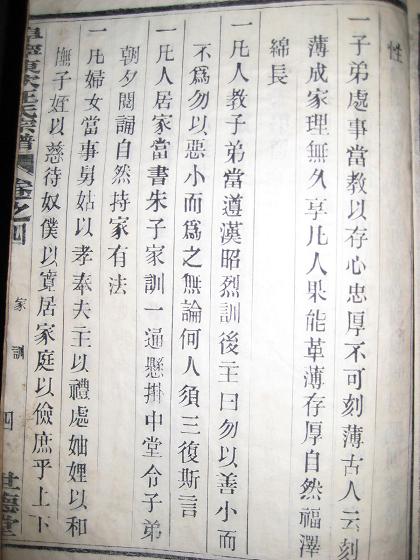 性
一子弟處事當教以存心忠厚不可刻薄古人云刻
薄成家理無久享凡人果能革薄存厚自然福澤
綿長
一凡人教子弟當遵漢昭烈訓後主曰勿以善小而
不爲勿以惡小而爲之無論何人須三復斯言
一凡人居家當書朱子家訓一遍懸掛中堂令子弟
朝夕閱誦自然持家有法
一凡婦女當事舅姑以孝奉夫主以禮處妯娌以和
撫子姪以慈待奴僕以寬居家庭以儉庶乎上下
阜寧東家氏宗譜 卷之四 家訓 四 世德堂